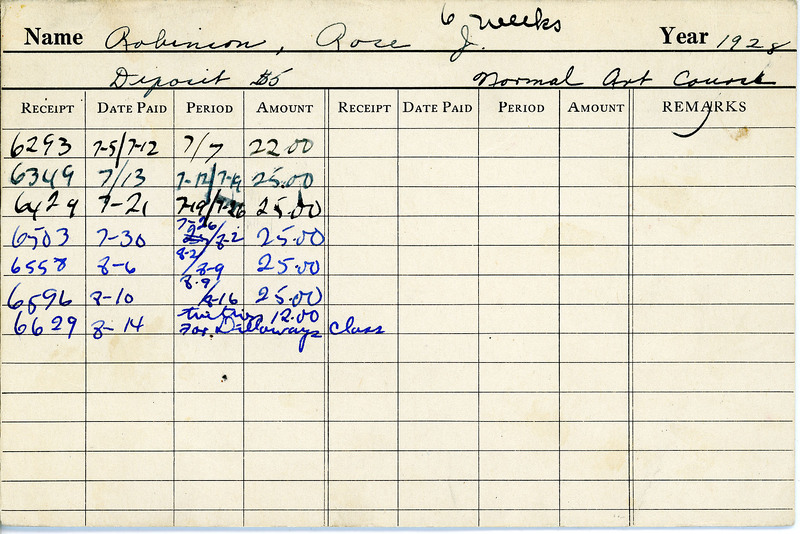 6 weeks
Name Robinson, Rose J. Year 1928
Deposit $5 Normal Art Course
RECEIPT DATE PAID PERIOD AMOUNT RECEIPT DATE PAID PERIOD AMOUNT REMARKS
6293 7-5/7-12 7/7 22.00
6349 7/13 7-12/7-19 25.00
6429 7-21 7-19/7-26 25.00
6503 7-30 7-26/8-2 25.00
6558 8-6 8-2/8-9 25.00
6596 8-10 8-9/8-16 25.00
tuition 12.00
6629 8-14 For Dilloways class